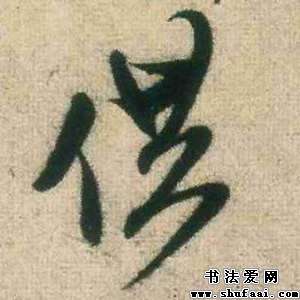 俱
书法爱网
www.shufaai.com